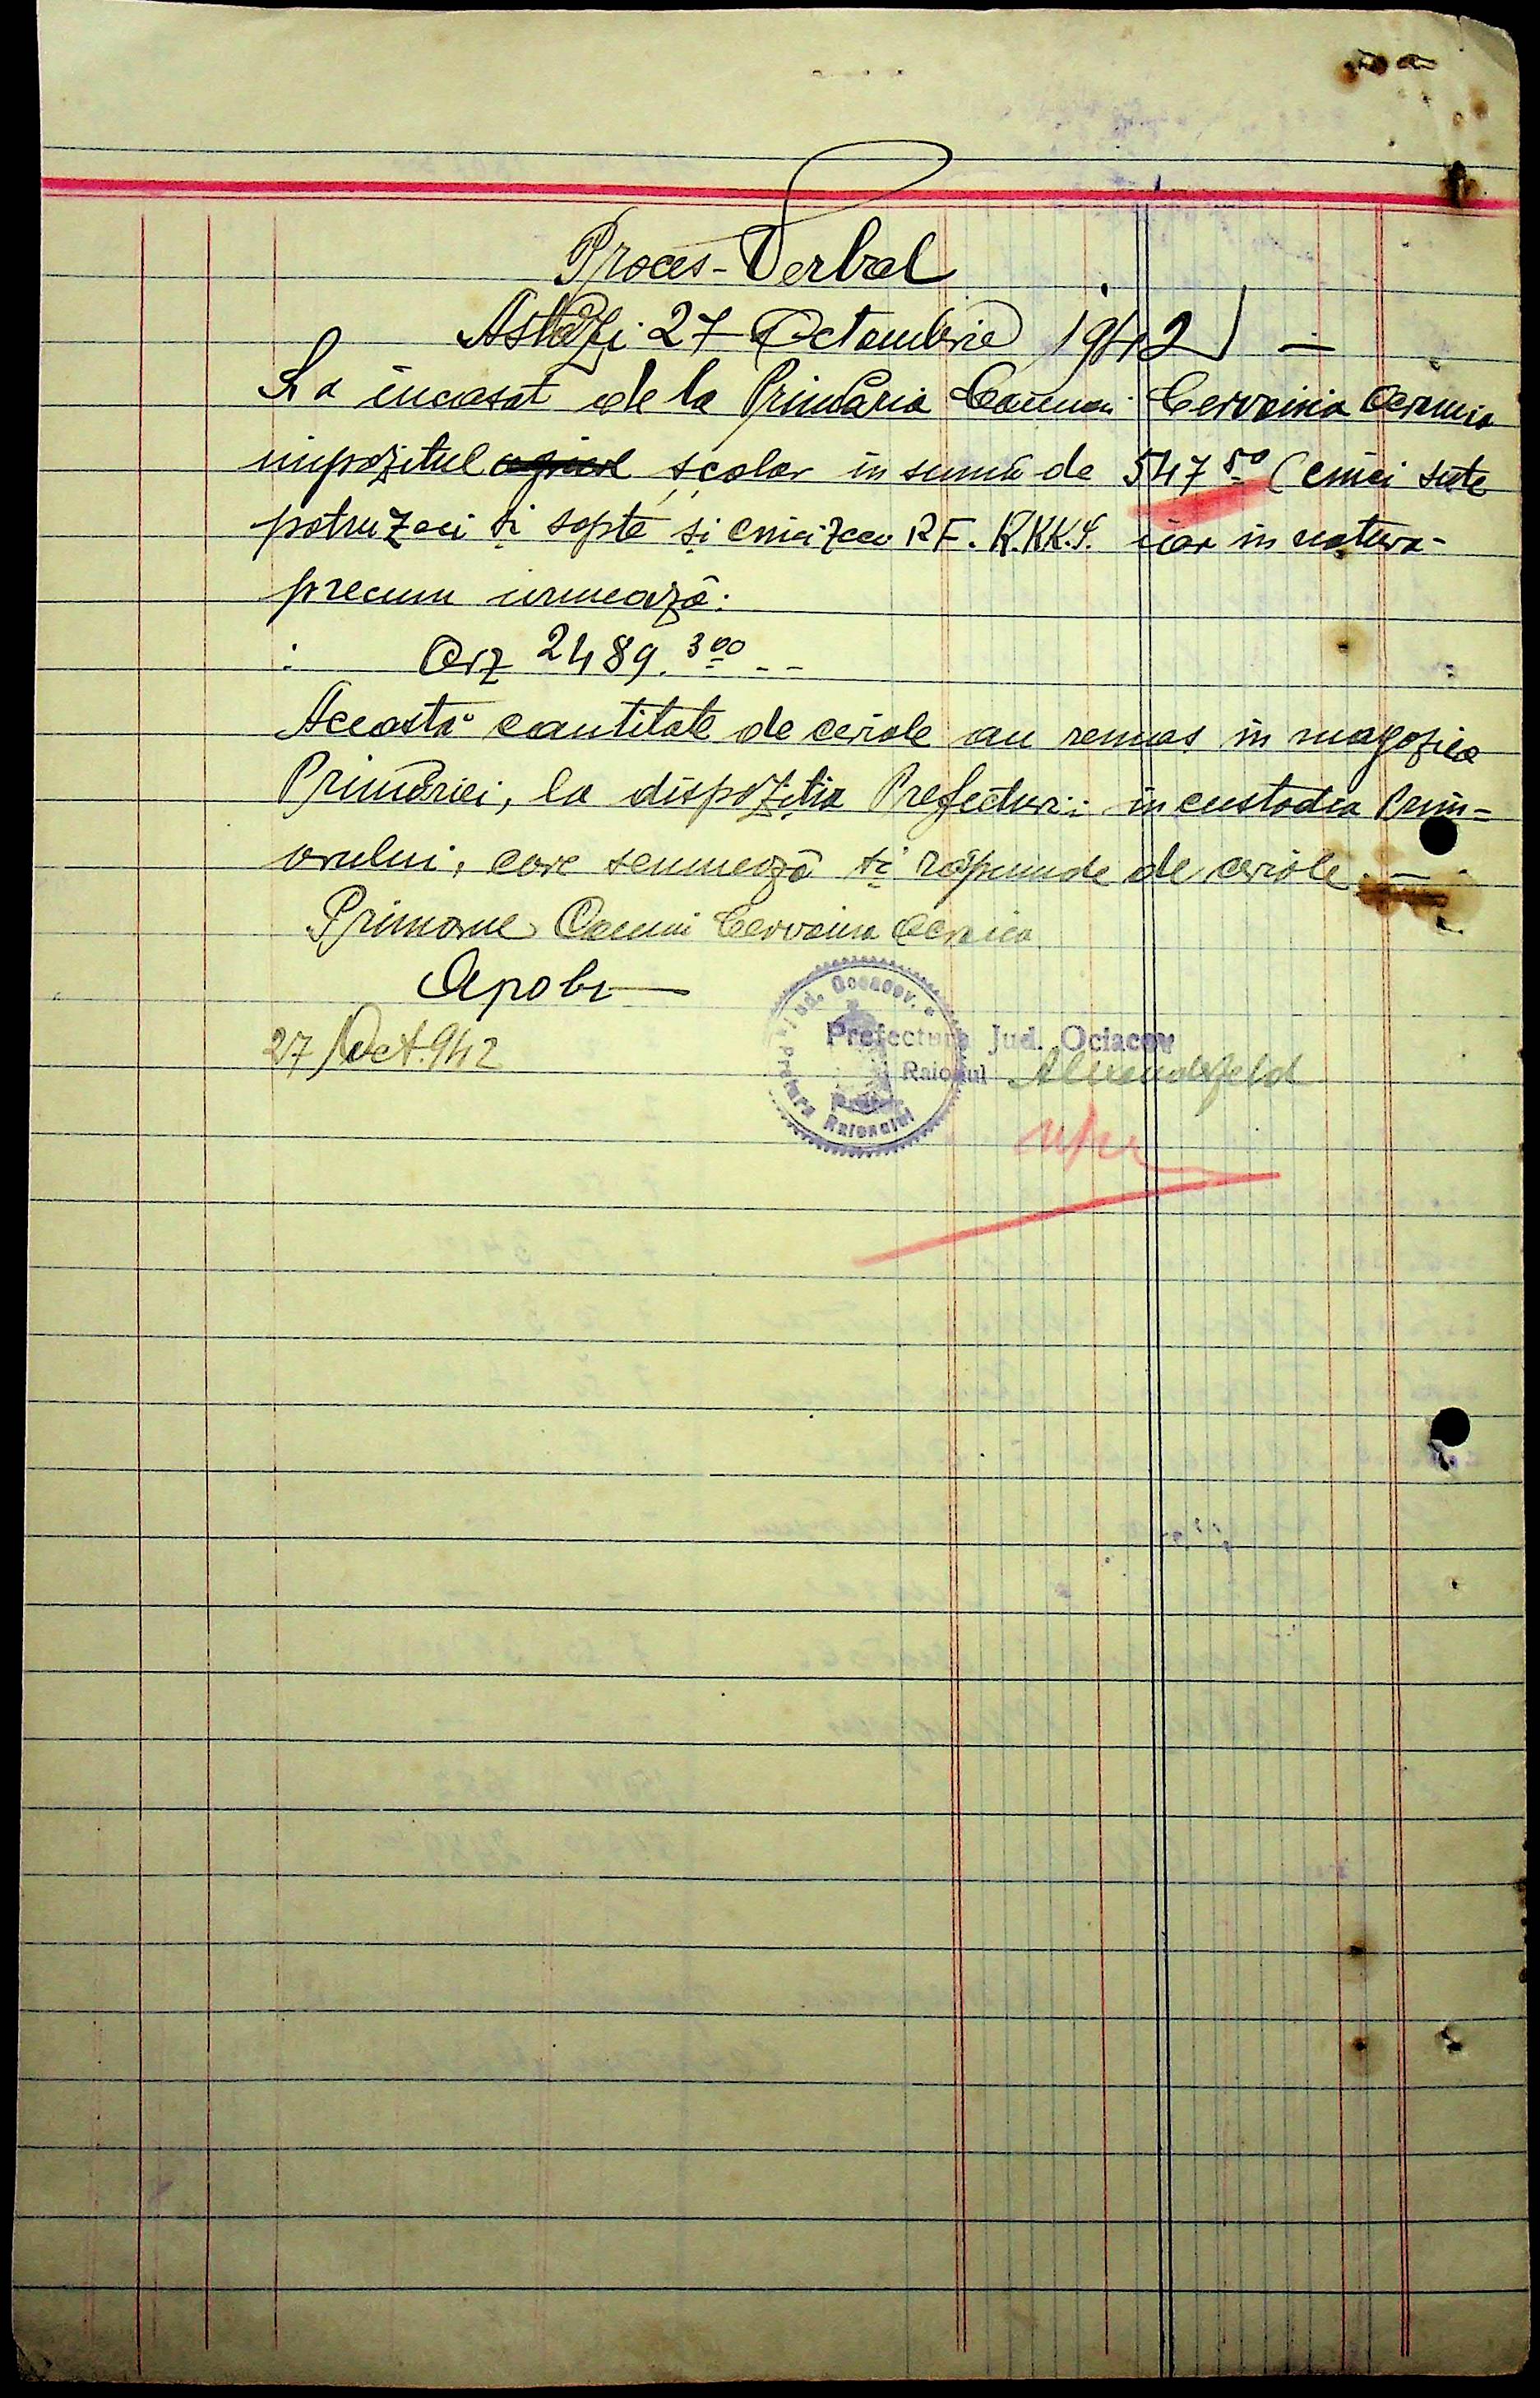 Proces-Verbal
Astăzi 27 Octombrie 1942 —
S'a incasat de la Primăria Comunei Cervoinia
impozitul școlar in sumă de 547 50 (cinci sute
potruzeci și sapte și cincizeci R.K.K.S. iar in natura-
precum urmează:
Orz 2489.300 --
Aceasta cantitate de ceriale au remas in magazia
Primăriei, la dispoziția Prefecturii in custodia Prim-
arului, care semnează și răspunde de ceriale. —
Primarul Comunei Cervoina
27/Oct.942
Prefectura Jud. Ociacov
Raionul
Pretura Raionului Jud. Ociacov.